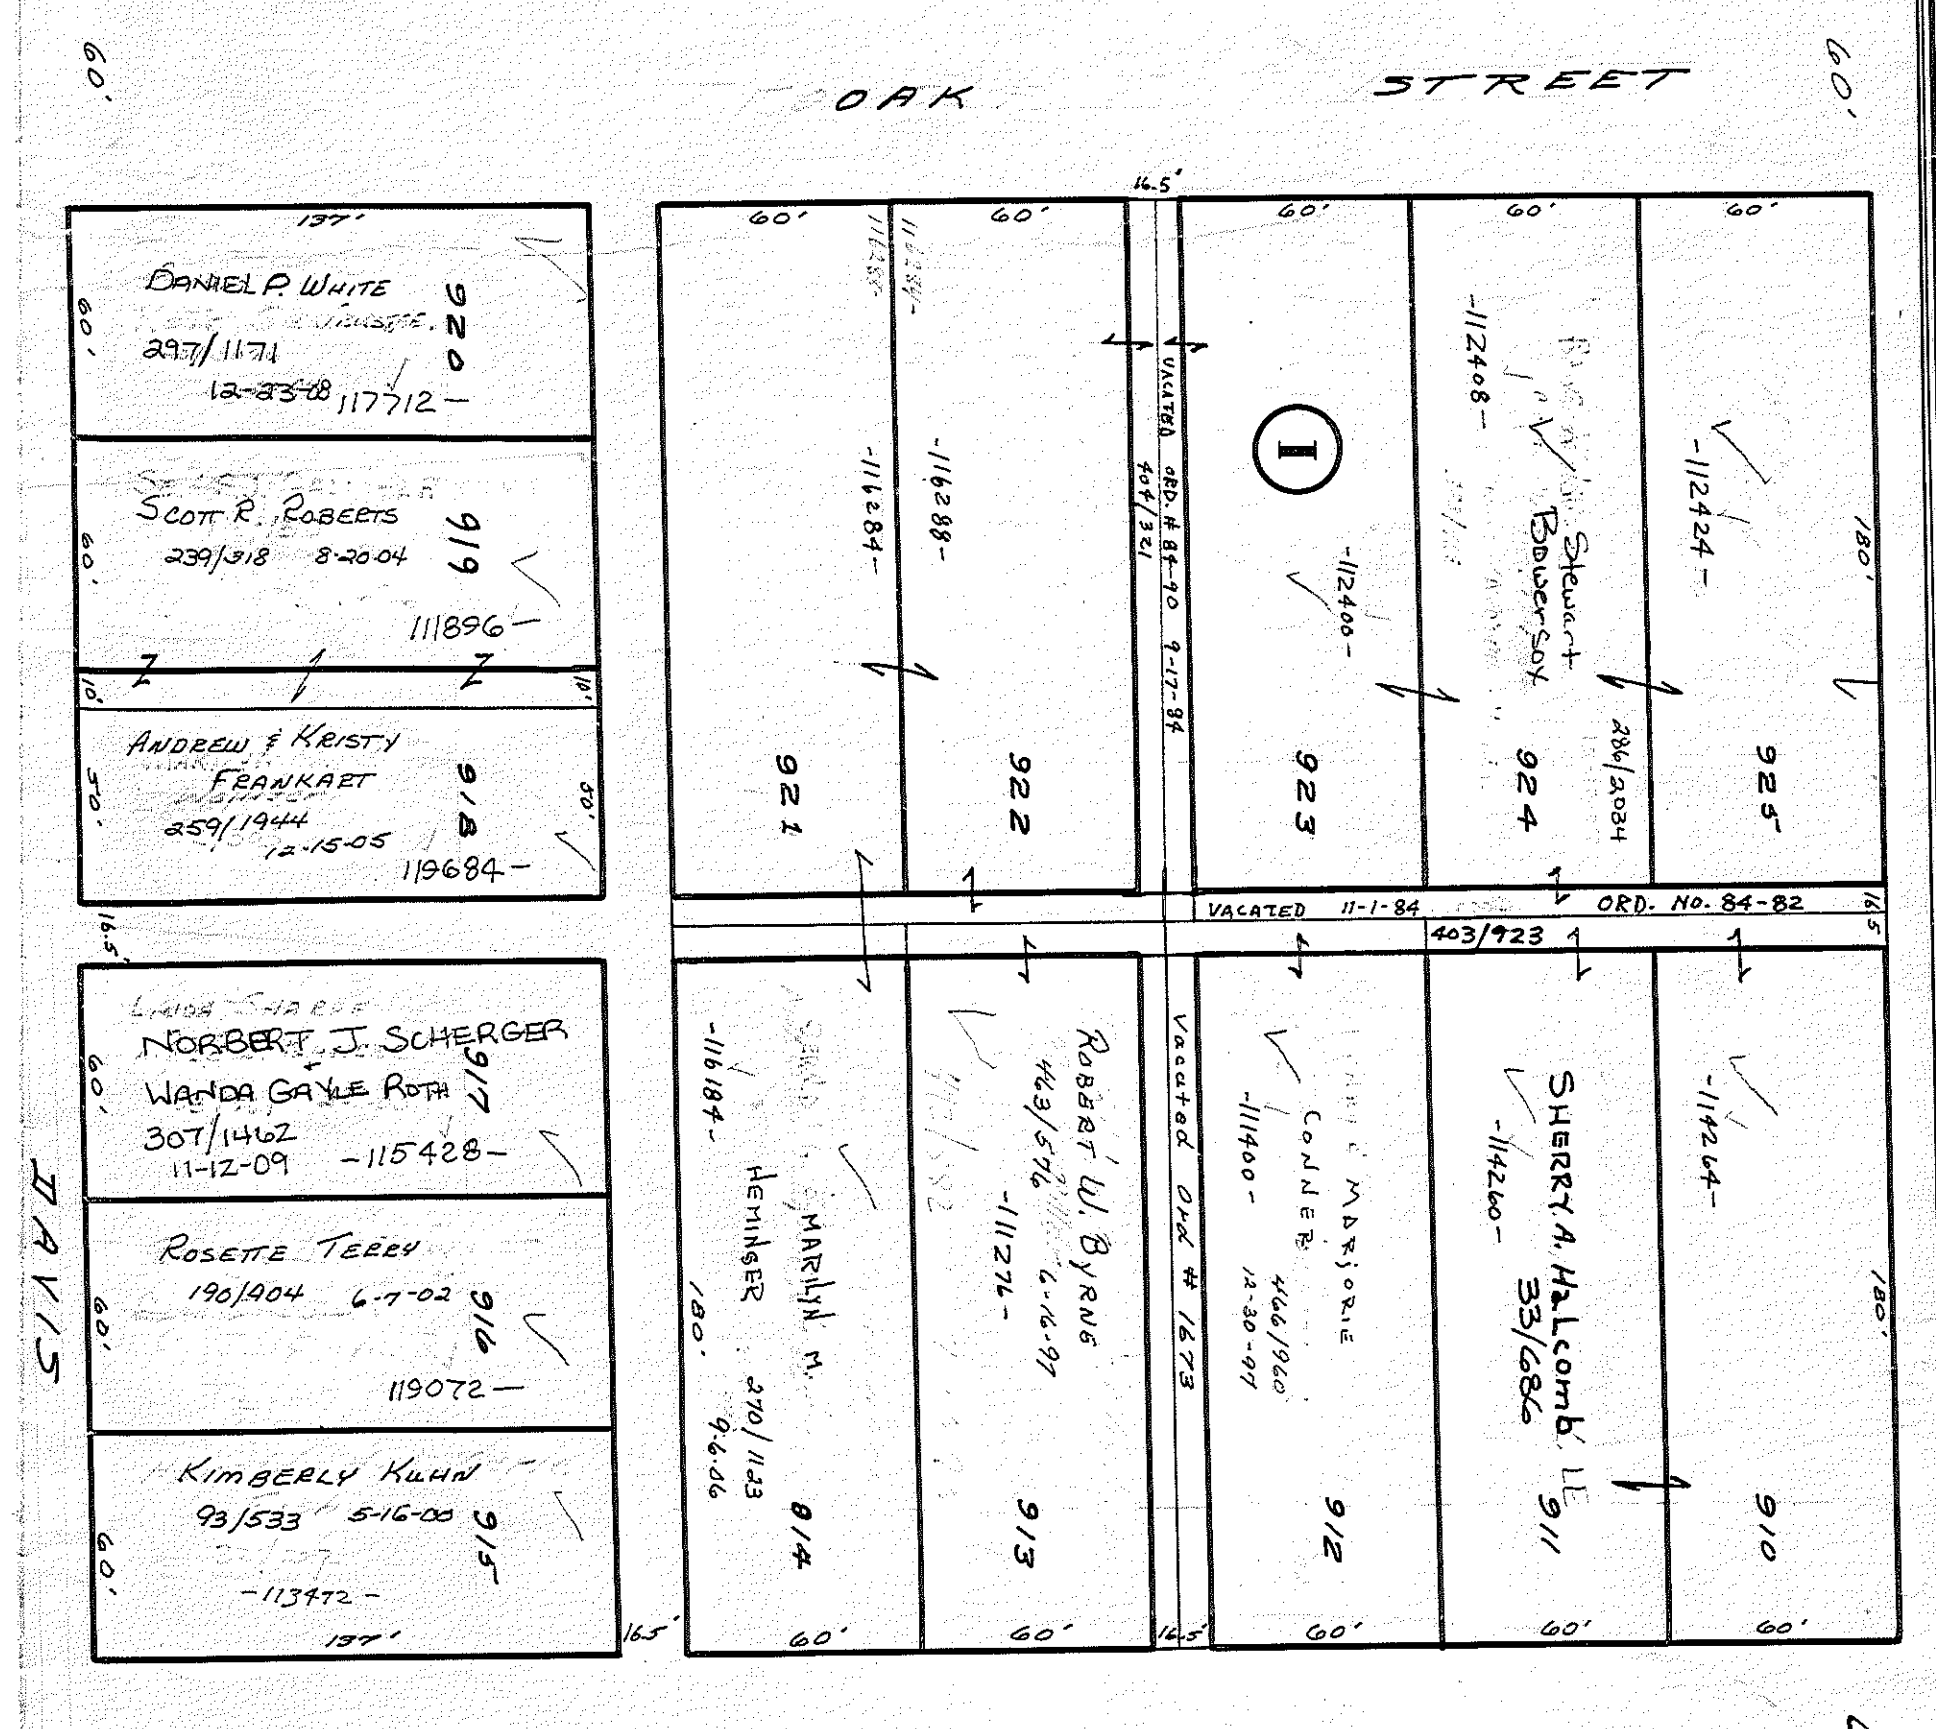 60'
OAK STREET
60'
137'
DANIEL P. WHITE
297/1171
12-23-08
117712-
920
60'
SCOTT R. ROBERTS
239/318 8-20-04
919
111896-
60'
10'
10'
ANDREW & KRISTY
FRANKART
259/1944
12-15-05
918
119684-
50'
50'
16.5'
NORBERT J. SCHERGER
+
WANDA GAYLE ROTH
307/1462
11-12-09
-115428-
917
60'
ROSETTE TERRY
190/904 6-7-02
916
119072-
60'
KIMBERLY KUHN
93/533 5-16-00
915
-113472-
60'
137'
DAVIS
16.5'
60'
116288-
-116284-
921
60'
116284-
-116288-
922
16.5'
VACATED ORD. # 84-90 9-17-84
404/321
60'
I
-112400-
923
60'
-112408-
Stewart
Bowersox
286/2034
924
60'
-112424-
180'
925
VACATED 11-1-84 ORD. NO. 84-82
403/923
16.5
-116184-
MARILYN M.
HEMINGER 270/1123
9-6-06
914
180'
60'
ROBERT W. BYRNE
463/576 6-16-97
-111276-
913
60'
Vacated Ord # 1673
16.5'
MARJORIE
CONNER
466/960
12-30-97
-111400-
912
60'
SHERRY A. HALCOMB LE
33/686
-114260-
911
60'
-114264-
910
180'
60'